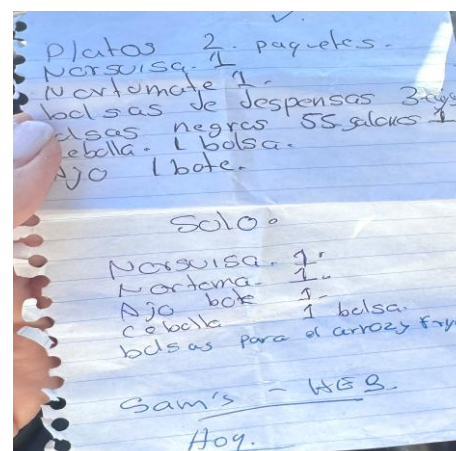 Platos 2. paquetes.
Norsuisa. 1
Nortomate 1.
bolsas de despensas 3
bolsas negras 55 galones 1
Cebolla. 1 bolsa.
Ajo 1 bote.
Solo.
Norsuisa. 1.
Nortoma. 1.
Ajo bote 1.
Cebolla 1 bolsa.
bolsas para el arroz y
Sam's - HEB
Hoy.